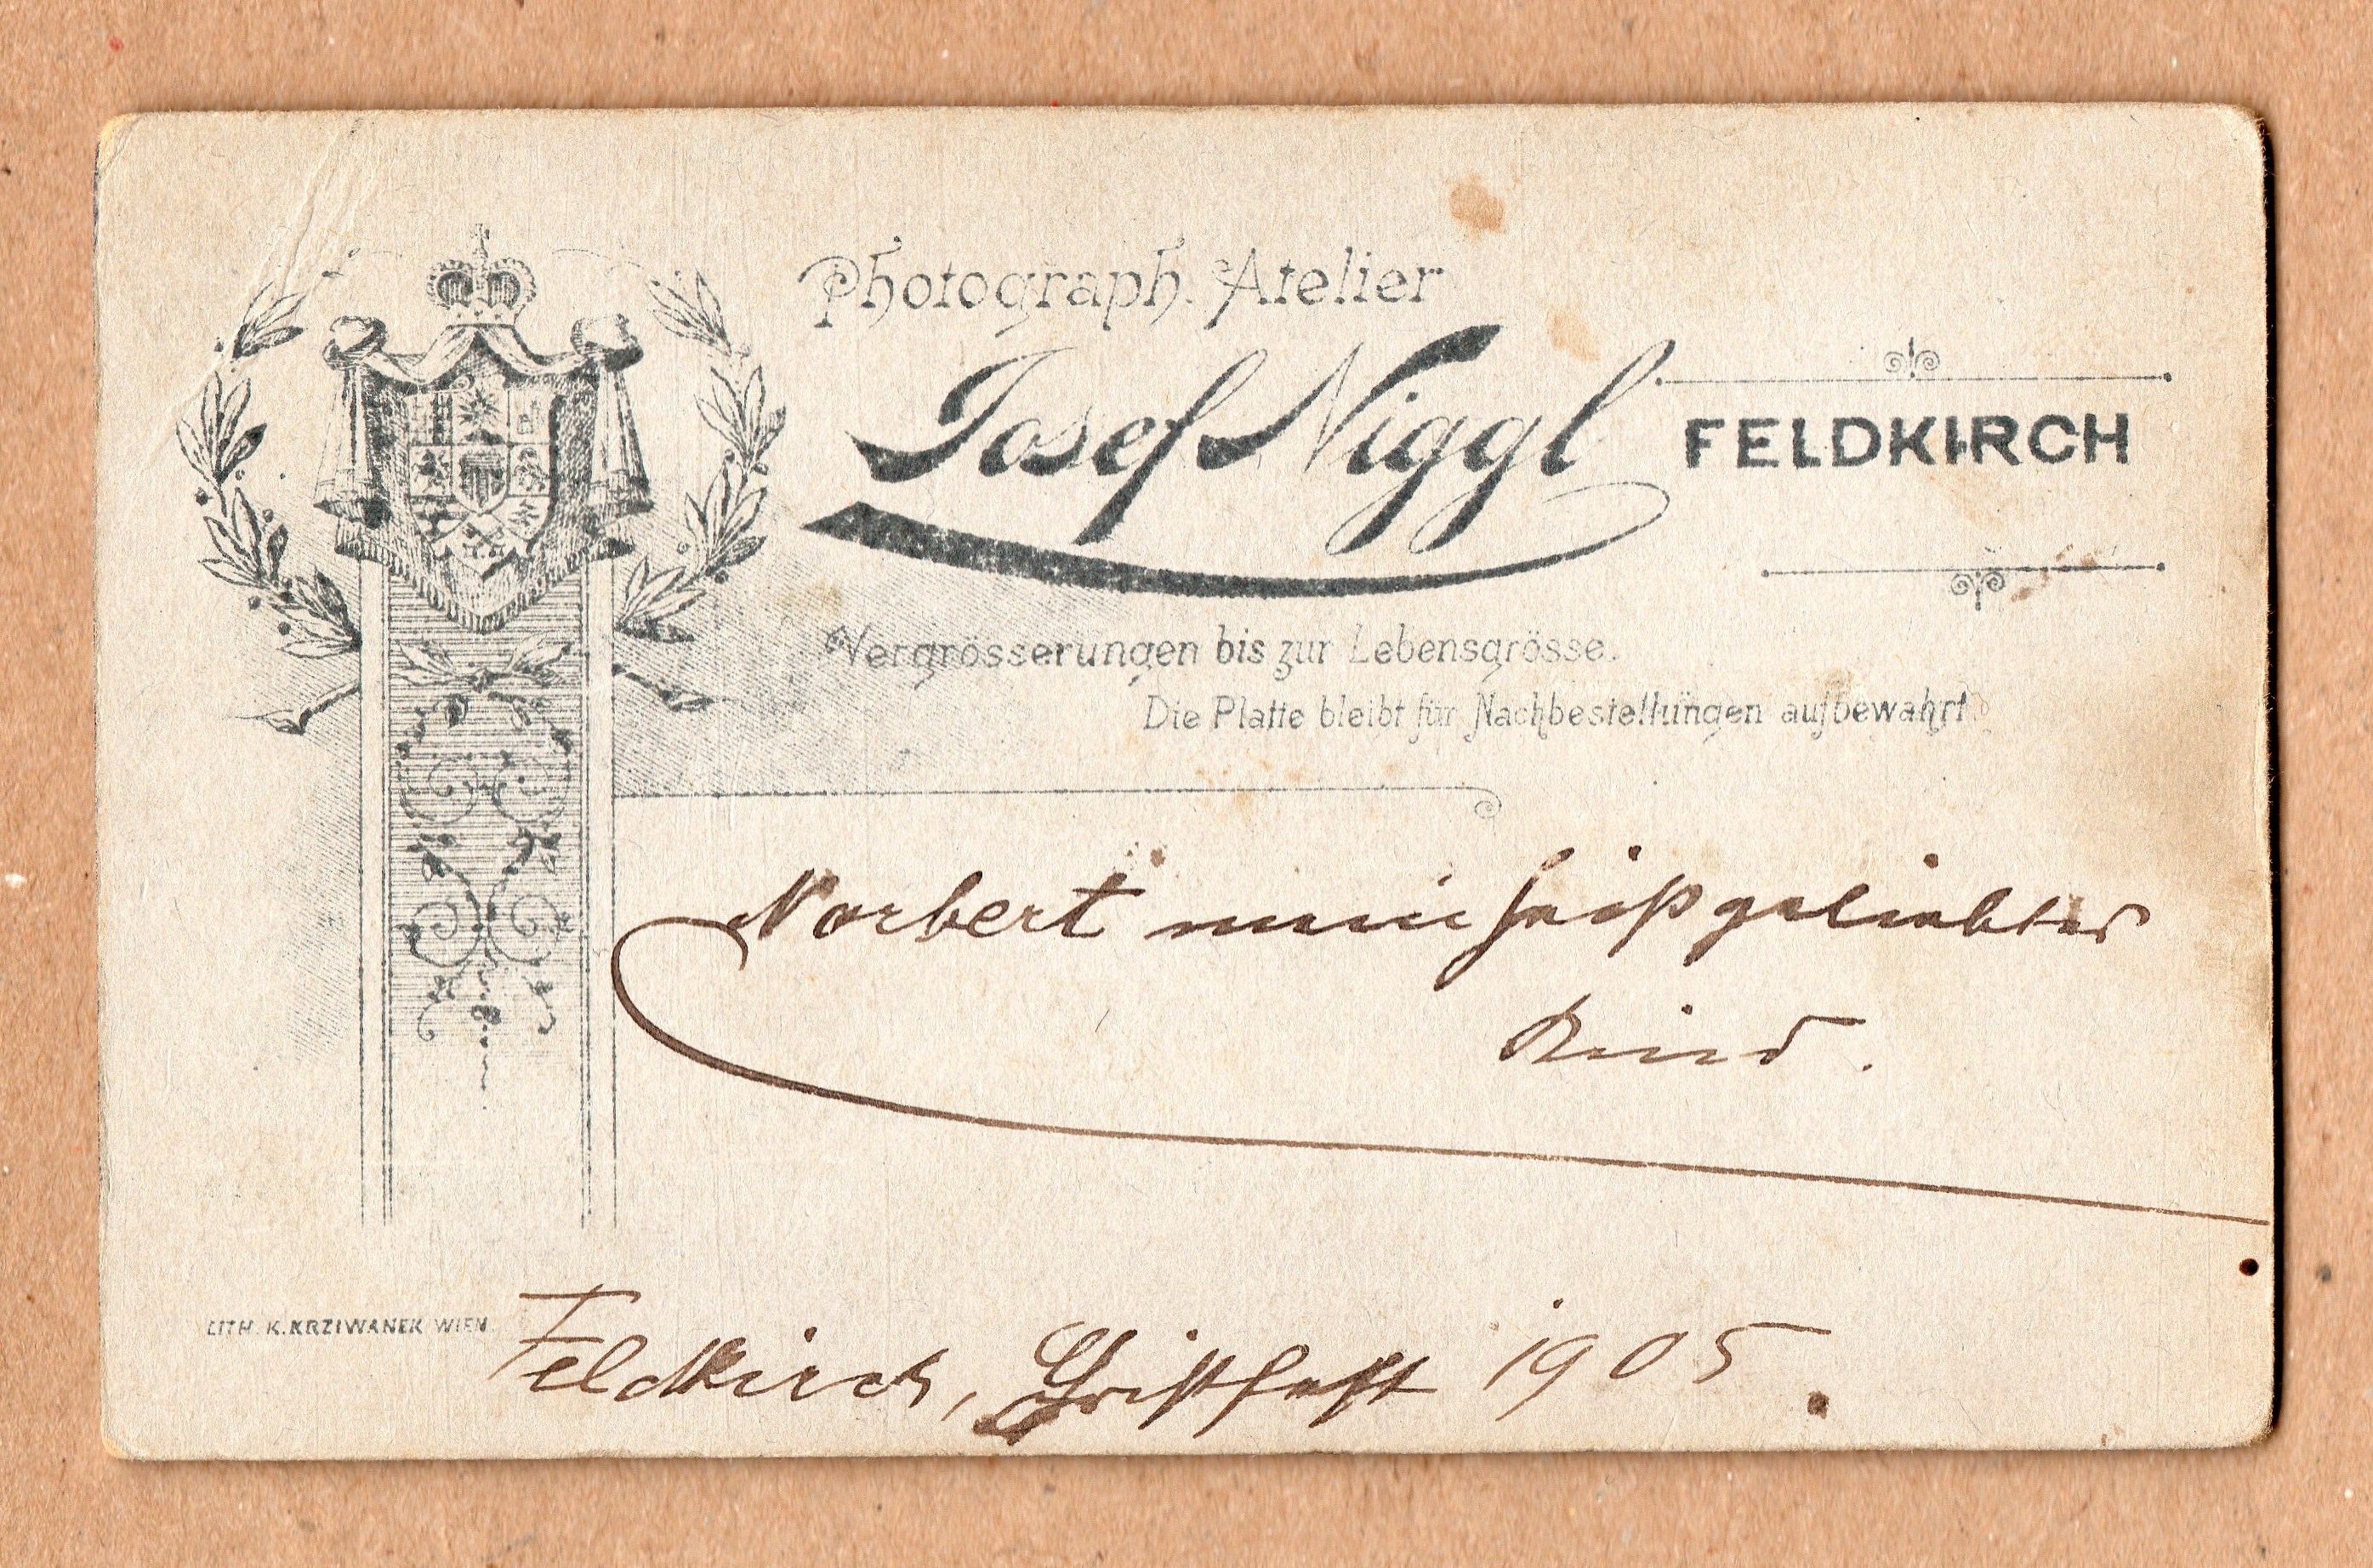 Photograph. Atelier
Josef Niggl
FELDKIRCH
Vergrösserungen bis zur Lebensgrösse.
Die Platte bleibt für Nachbestellungen aufbewahrt.
Norbert mein heißgeliebtes
Kind.
LITH. K. KRZIWANEK WIEN.
Feldkirch, Christfest 1905.